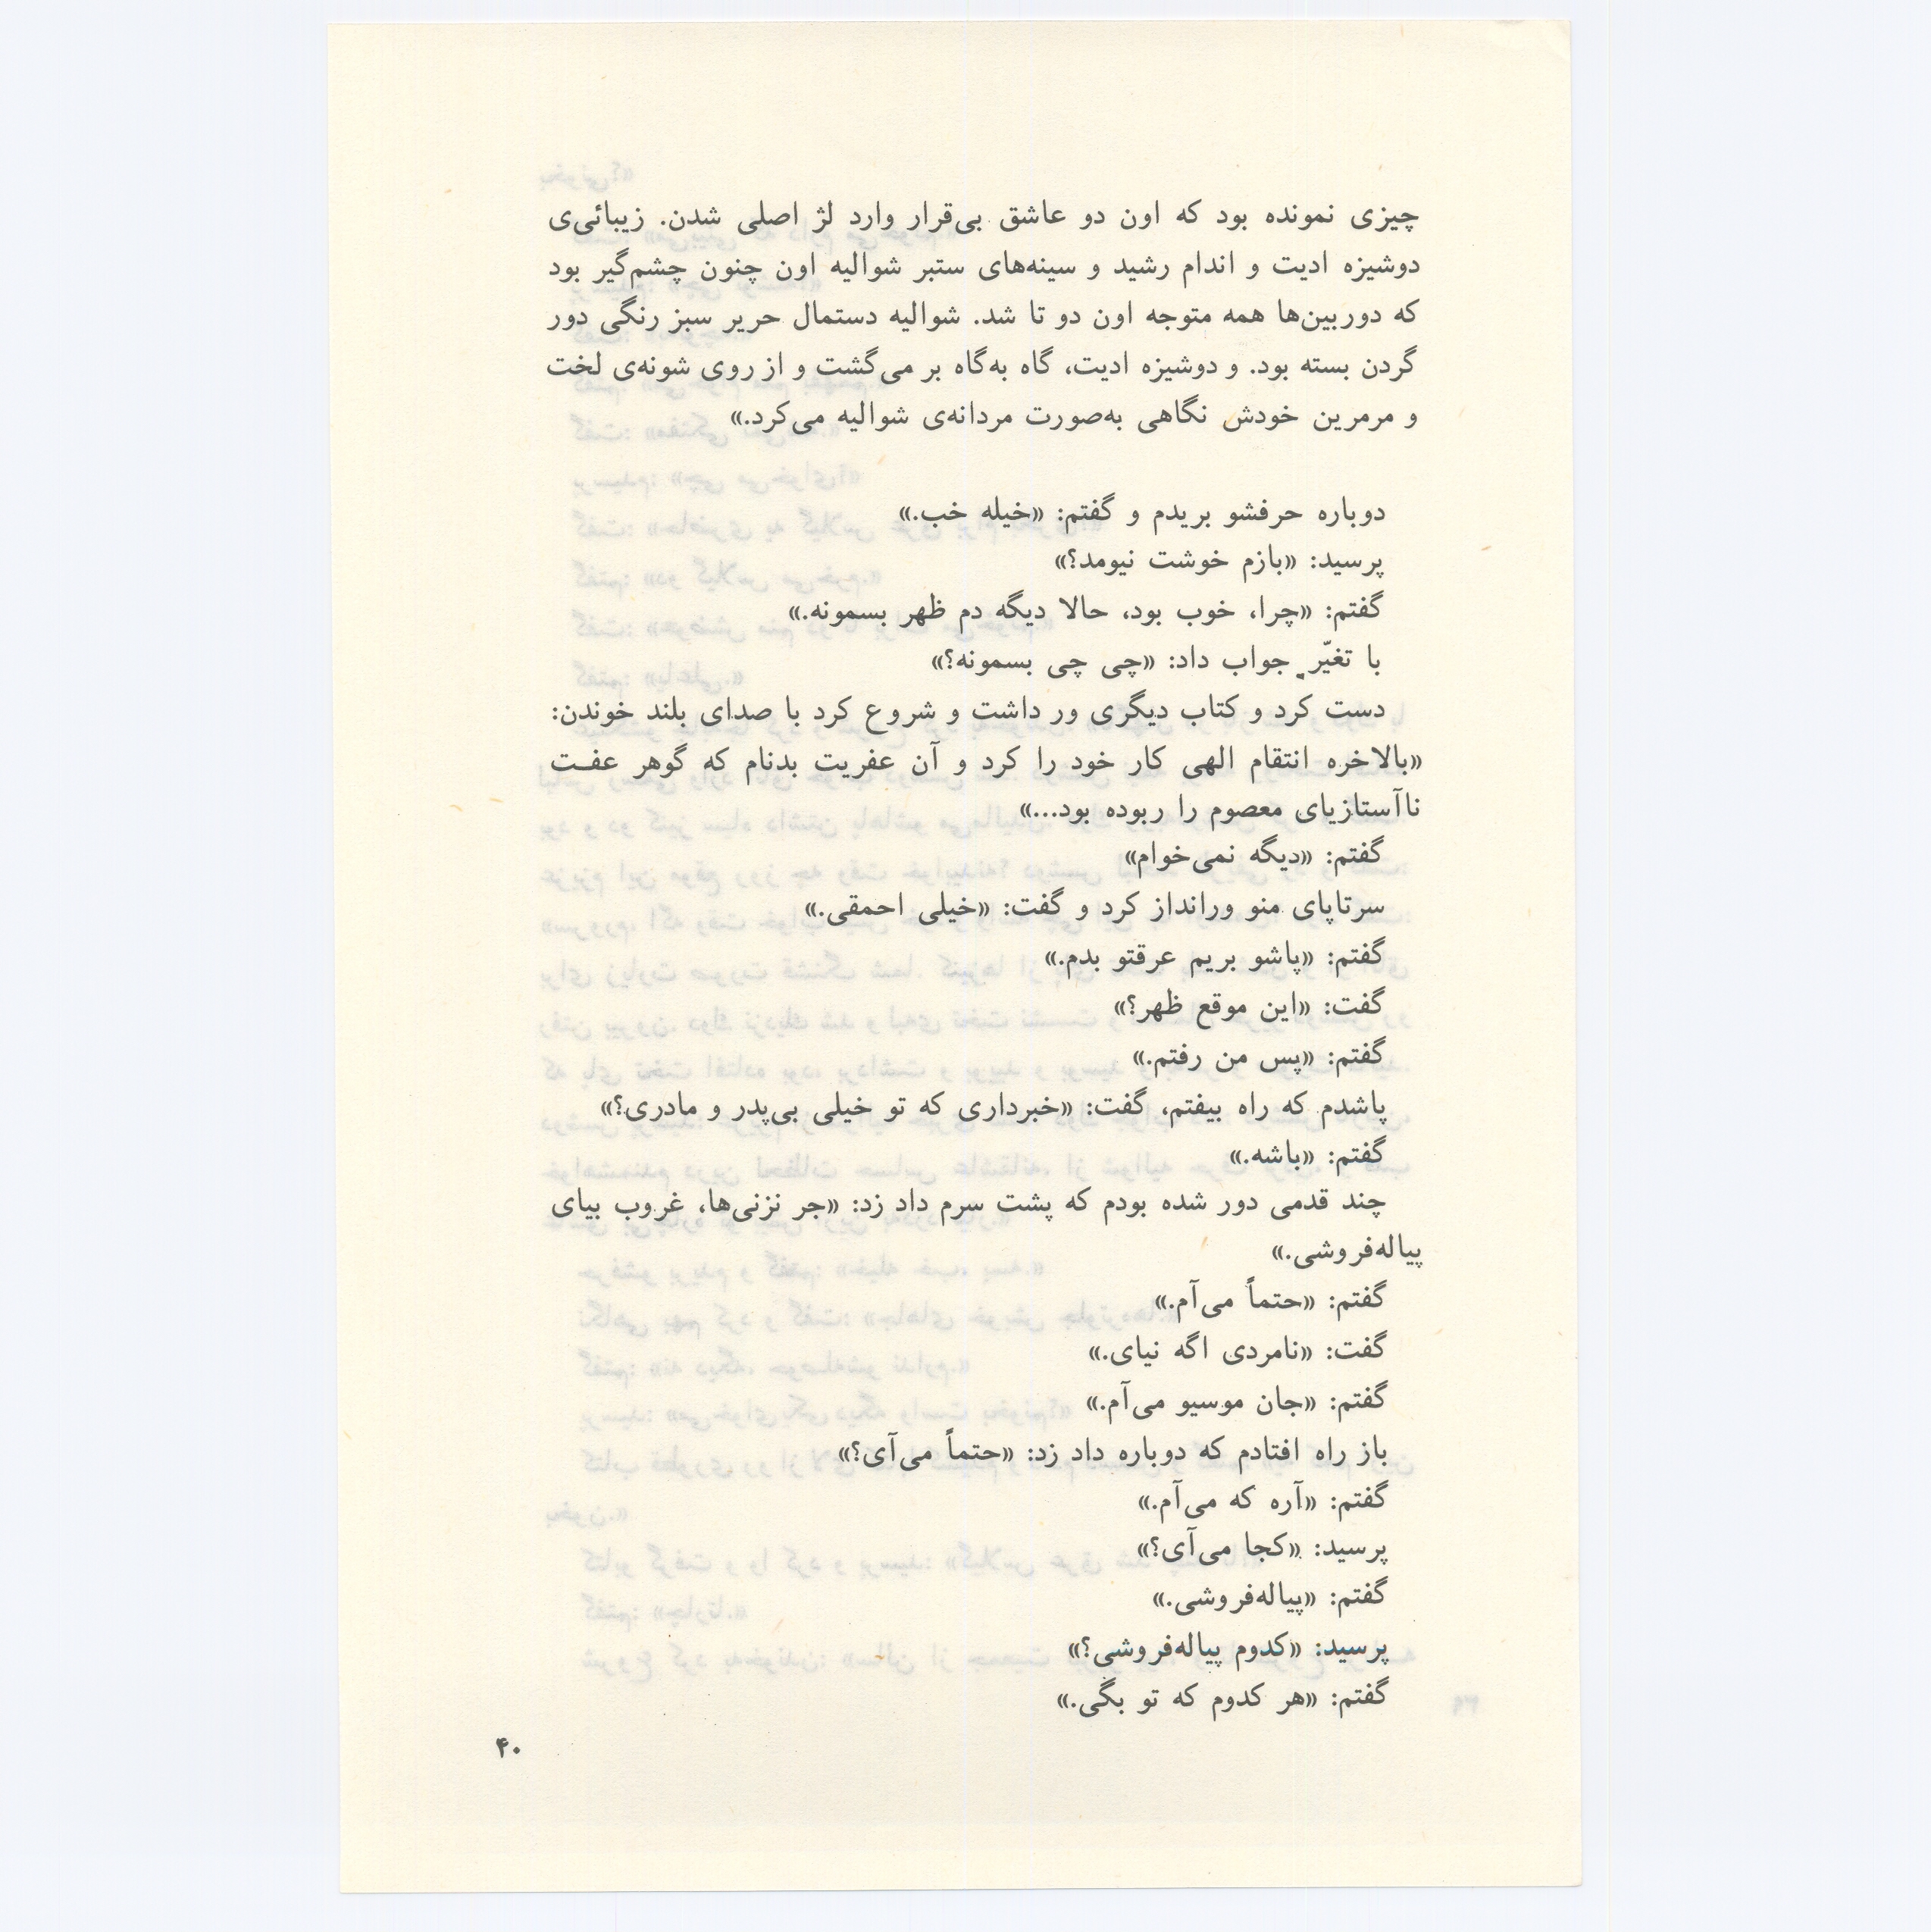 چیزی نمونده بود که اون دو عاشق بی‌قرار وارد لژ اصلی شدن. زیبائی‌ی
دوشیزه ادیت و اندام رشید و سینه‌های ستبر شوالیه اون چنون چشم‌گیر بود
که دوربین‌ها همه متوجه اون دو تا شد. شوالیه دستمال حریر سبز رنگی دور
گردن بسته بود. و دوشیزه ادیت، گاه به‌گاه بر می‌گشت و از روی شونه‌ی لخت
و مرمرین خودش نگاهی به‌صورت مردانه‌ی شوالیه می‌کرد.»
دوباره حرفشو بریدم و گفتم: «خیله خب.»
پرسید: «بازم خوشت نیومد؟»
گفتم: «چرا، خوب بود، حالا دیگه دم ظهر بسمونه.»
با تغیّر جواب داد: «چی چی بسمونه؟»
دست کرد و کتاب دیگری ور داشت و شروع کرد با صدای بلند خوندن:
«بالاخره انتقام الهی کار خود را کرد و آن عفریت بدنام که گوهر عفت
ناآستازیای معصوم را ربوده بود...»
گفتم: «دیگه نمی‌خوام»
سرتاپای منو ورانداز کرد و گفت: «خیلی احمقی.»
گفتم: «پاشو بریم عرقتو بدم.»
گفت: «این موقع ظهر؟»
گفتم: «پس من رفتم.»
پاشدم که راه بیفتم، گفت: «خبرداری که تو خیلی بی‌پدر و مادری؟»
گفتم: «باشه.»
چند قدمی دور شده بودم که پشت سرم داد زد: «جر نزنی‌ها، غروب بیای
پیاله‌فروشی.»
گفتم: «حتماً می‌آم.»
گفت: «نامردی اگه نیای.»
گفتم: «جان موسیو می‌آم.»
باز راه افتادم که دوباره داد زد: «حتماً می‌آی؟»
گفتم: «آره که می‌آم.»
پرسید: «کجا می‌آی؟»
گفتم: «پیاله‌فروشی.»
پرسید: «کدوم پیاله‌فروشی؟»
گفتم: «هر کدوم که تو بگی.»
۴۰